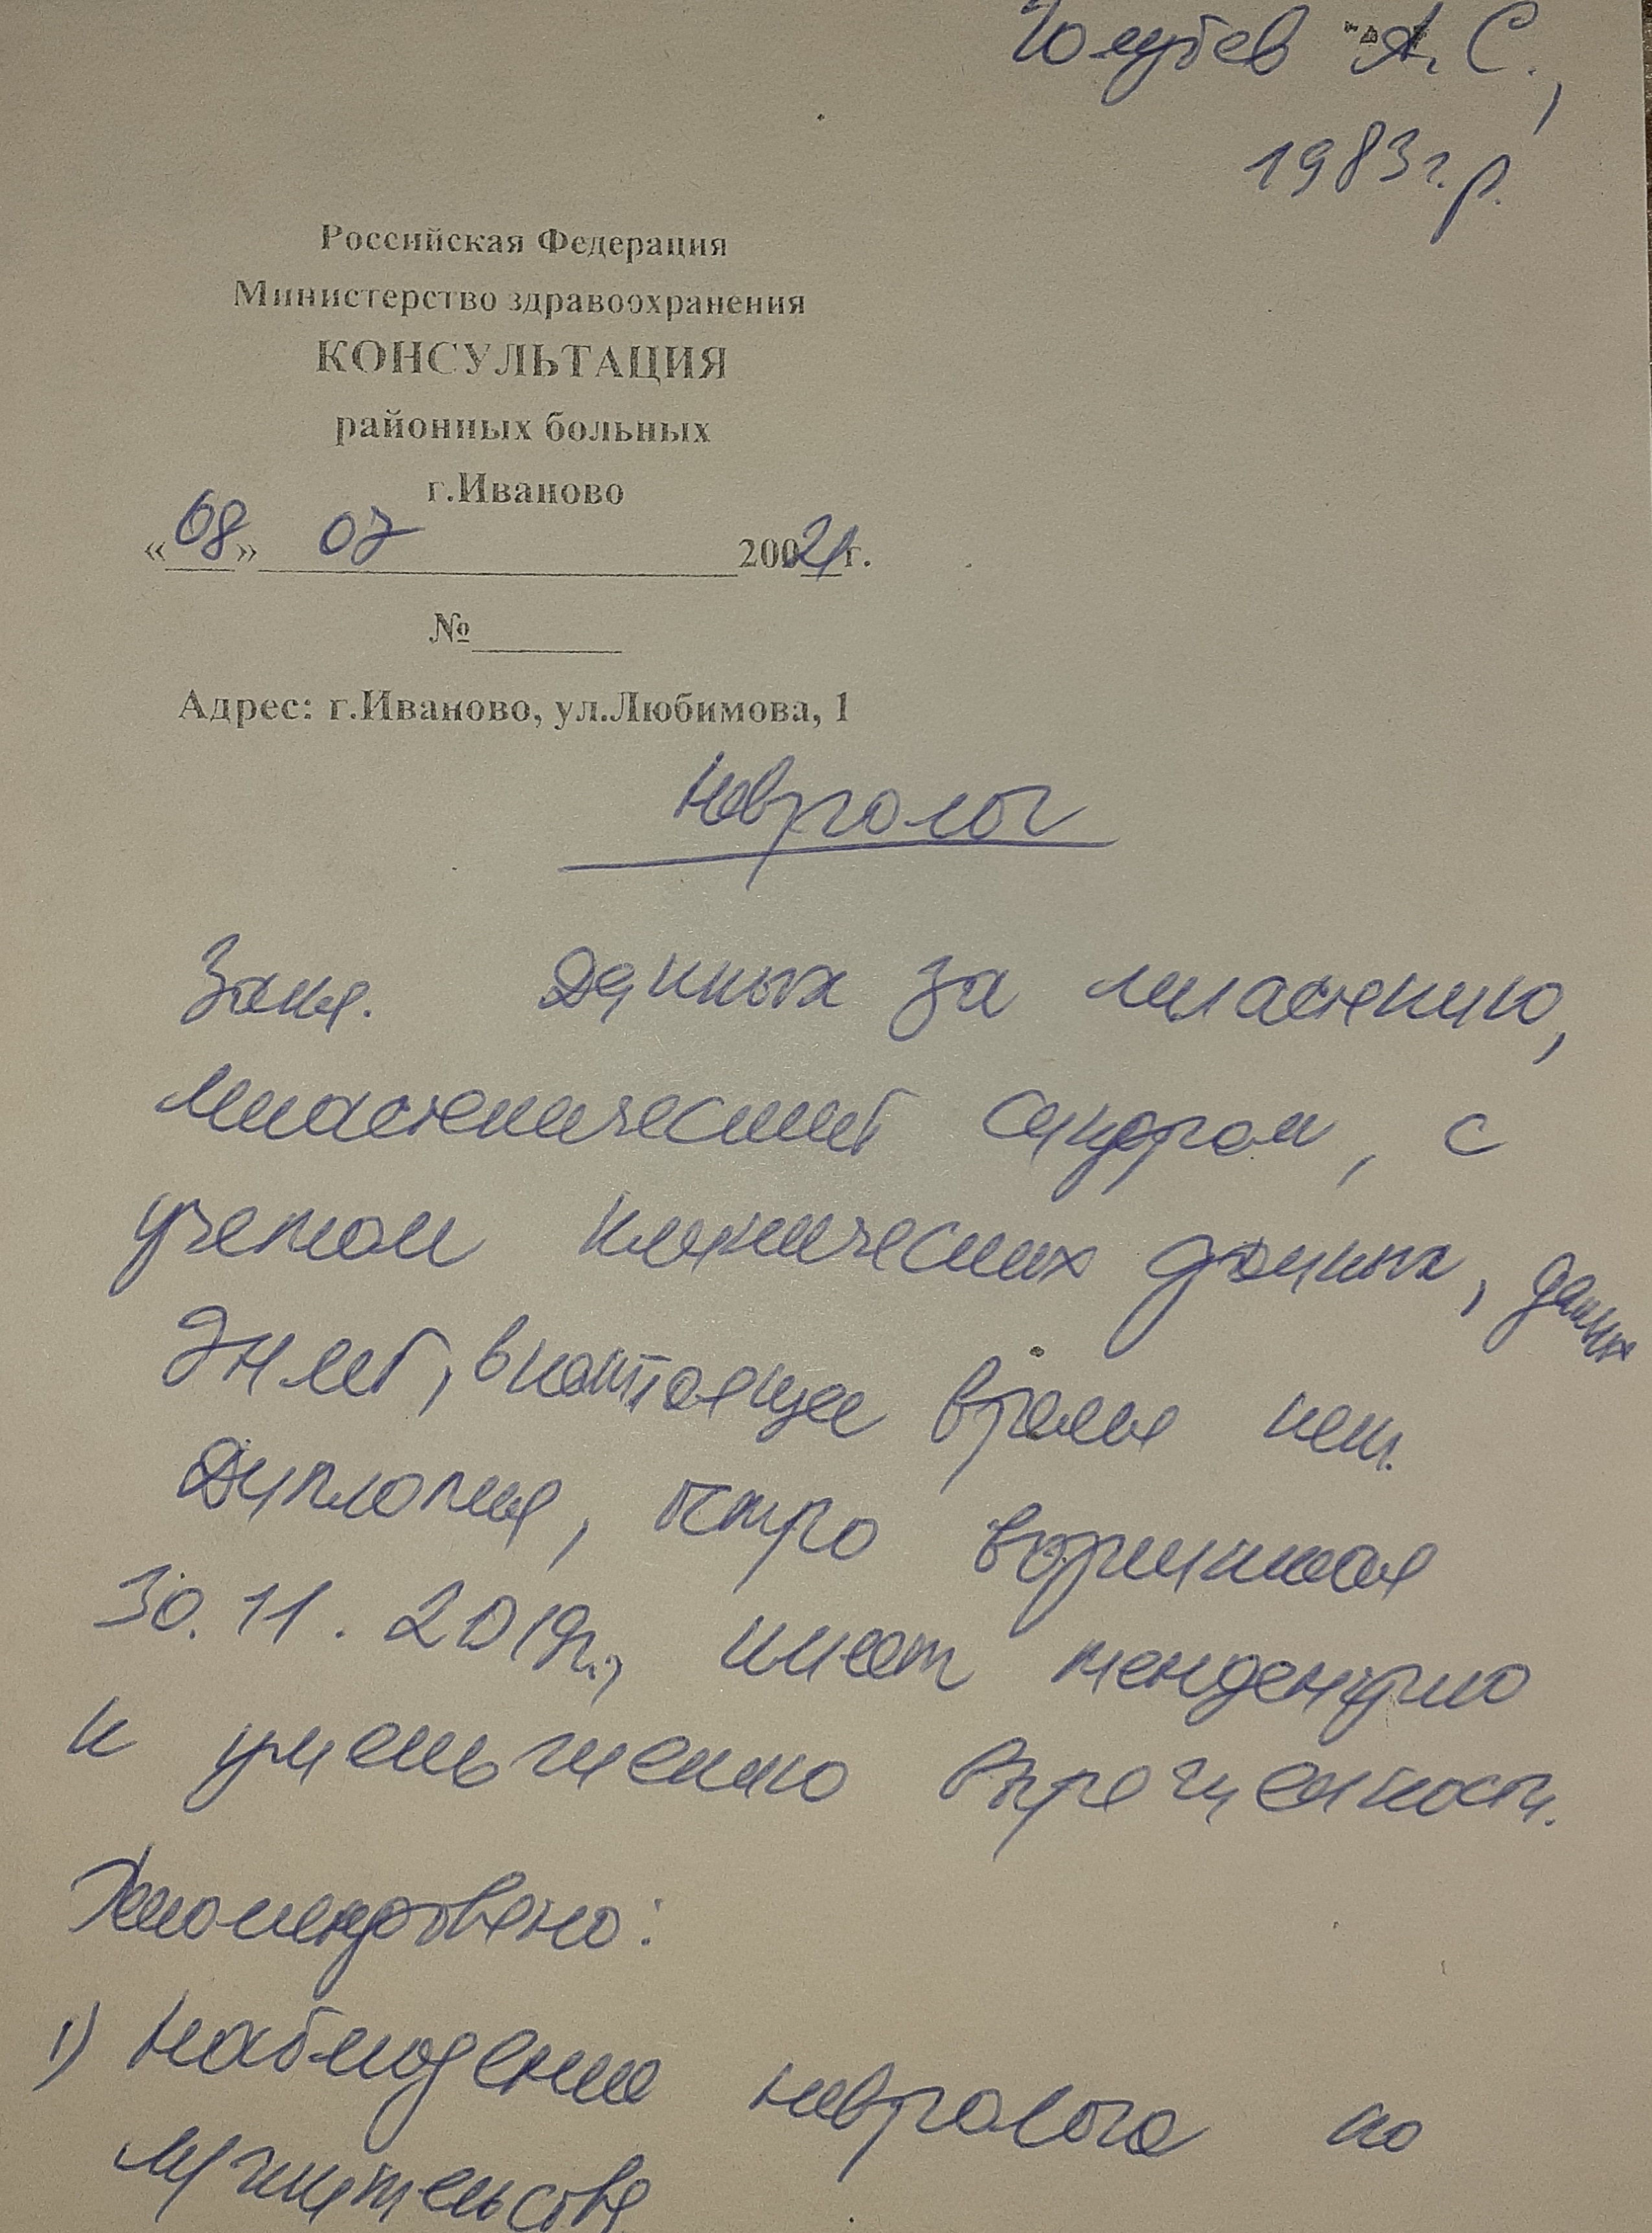 Голубев А. С.,
1983 г.р.
Российская Федерация
Министерство здравоохранения
КОНСУЛЬТАЦИЯ
районных больных
г.Иваново
«08» 07 20021г.
№
Адрес: г.Иваново, ул.Любимова, 1
Невролог
Закл. Данных за миастению,
миастенический синдром, с
учетом клинических данных, данных
ЭНМГ, в настоящее время нет.
Диплопия, остро возникшая
30.11.2019г., имеет тенденцию
к уменьшению выраженности.
Рекомендовано:
1) Наблюдение невролога по
м/жительства